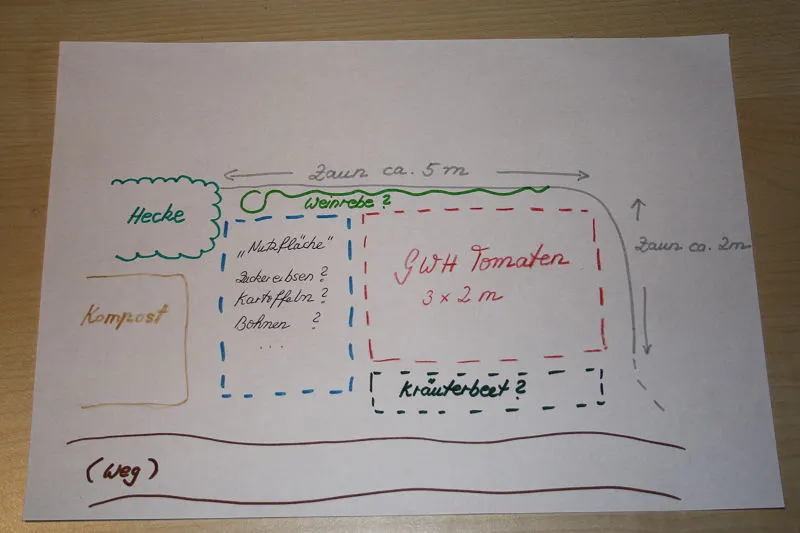 Zaun ca. 5 m
Weinrebe ?
Hecke
"Nutzfläche"
Zuckererbsen ?
Kartoffeln ?
Bohnen ?
...
GWH Tomaten
3 x 2 m
Zaun ca. 2m
Kompost
Kräuterbeet ?
(Weg)